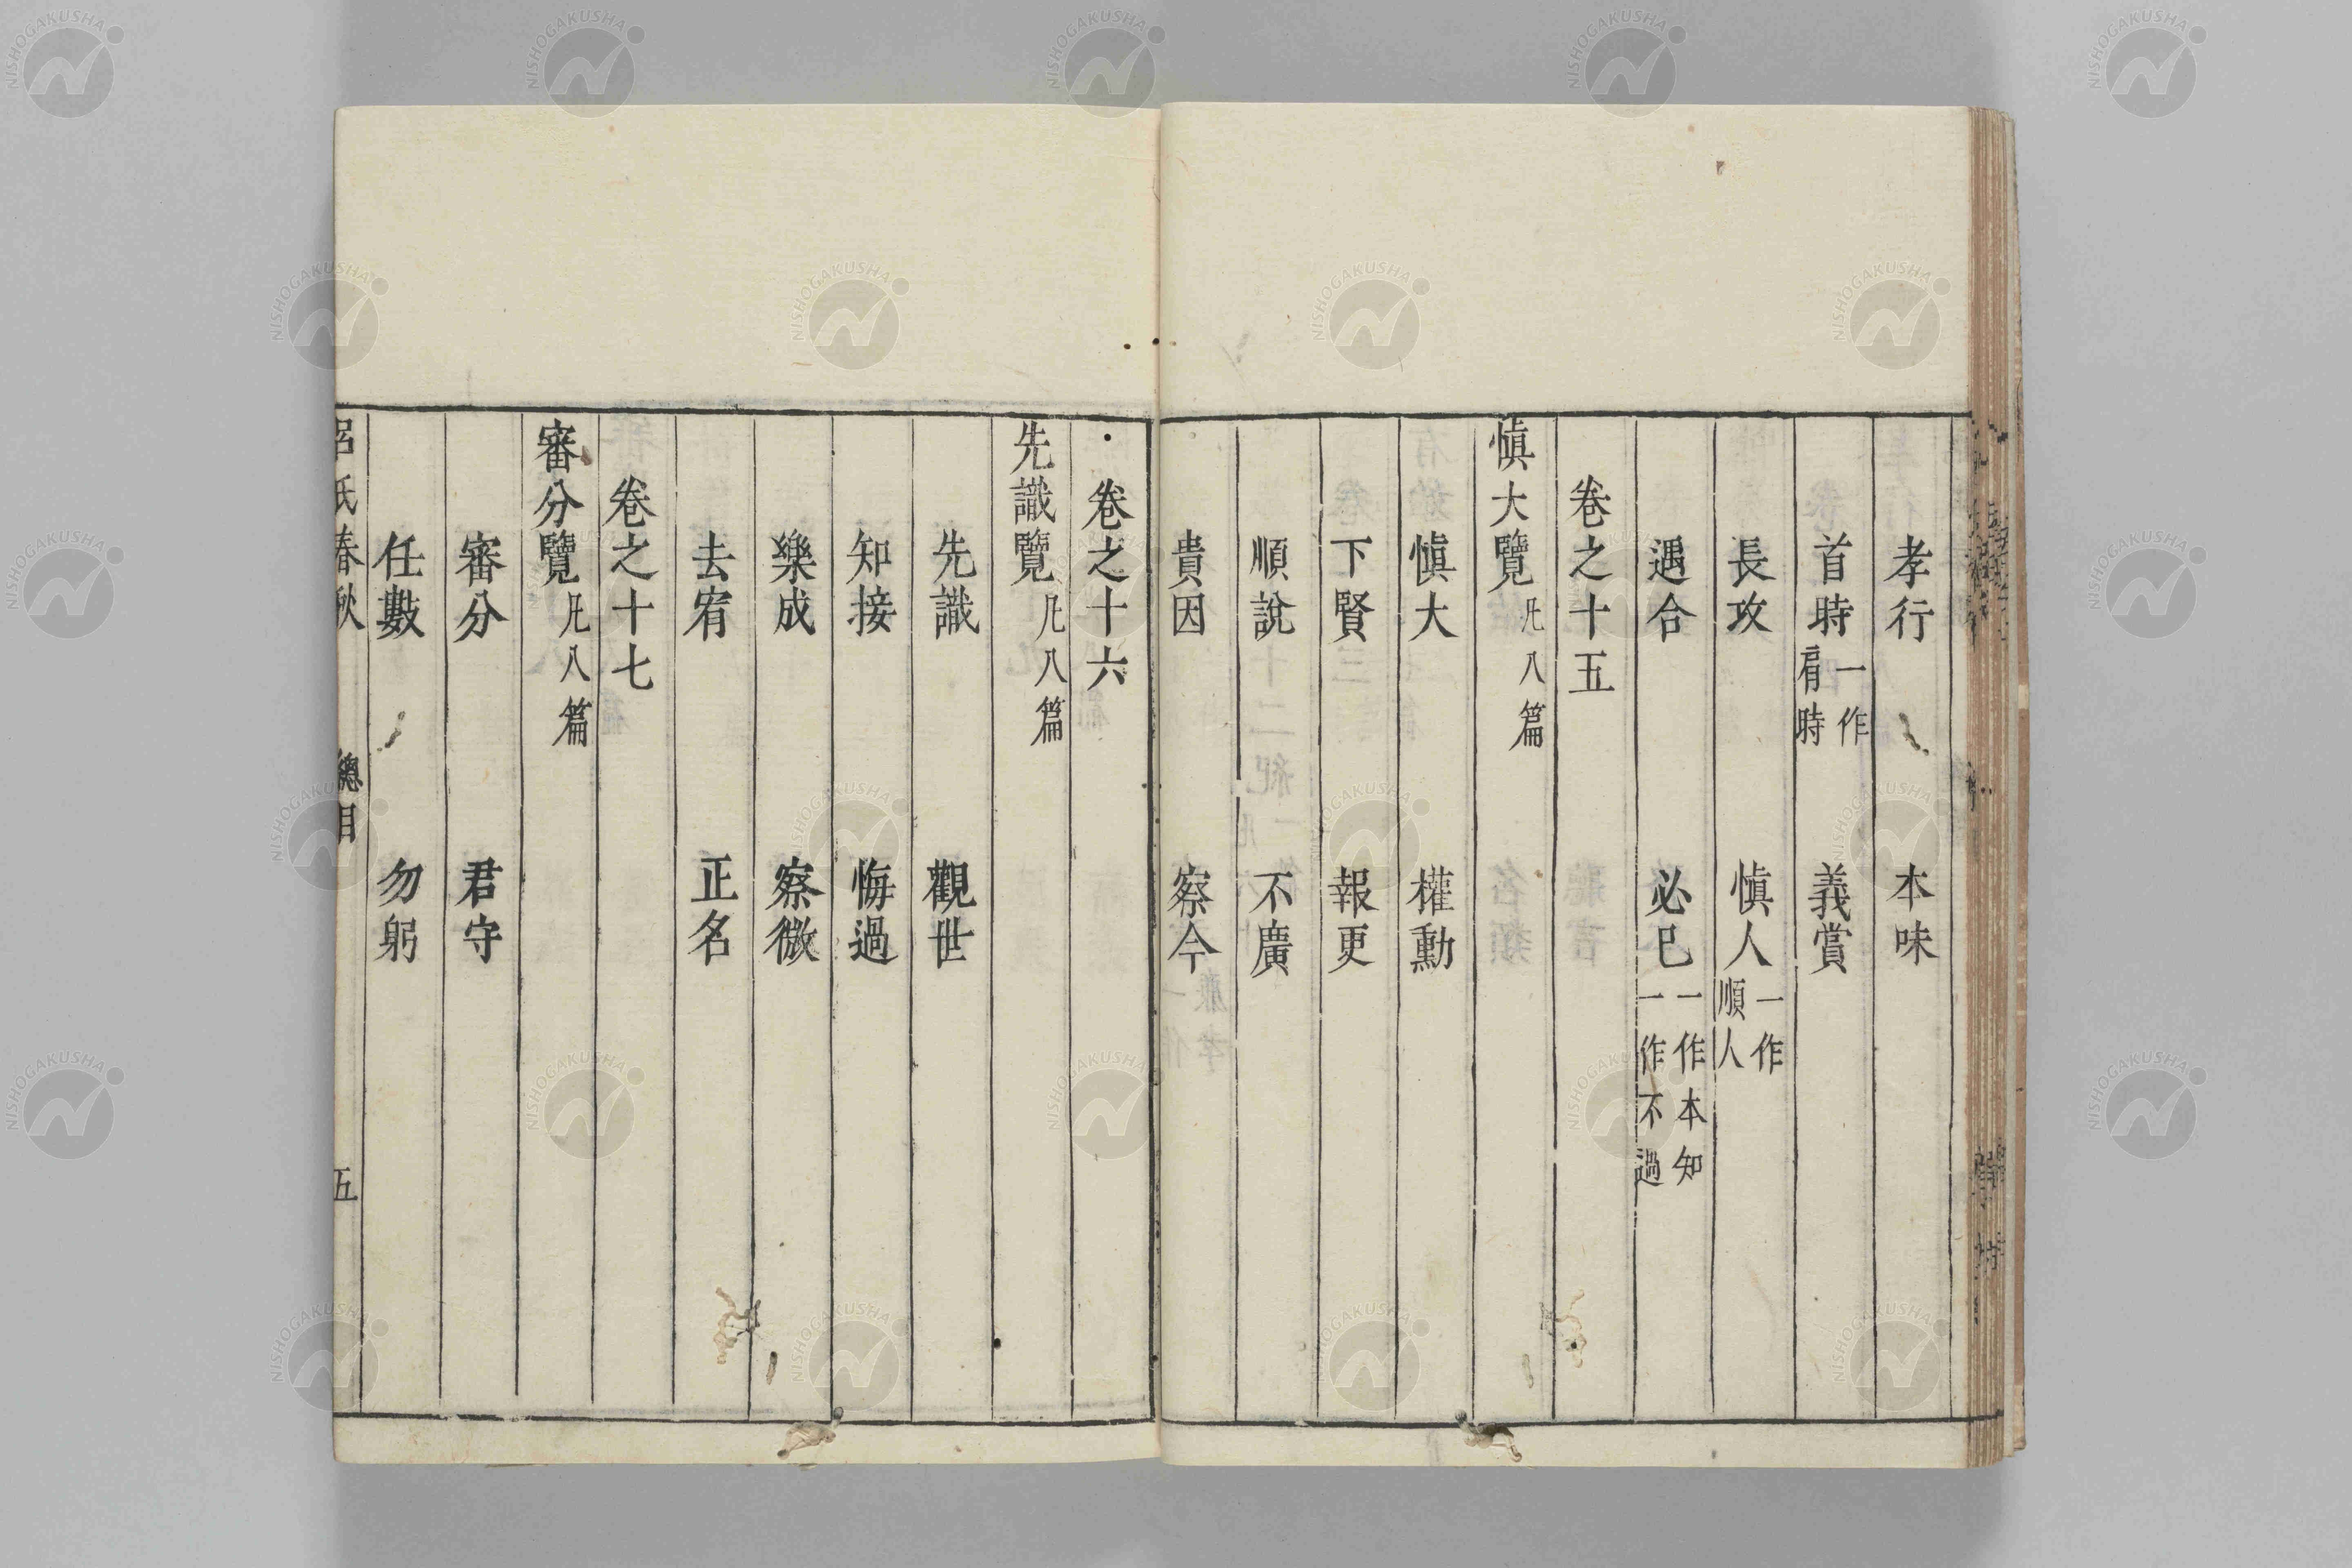 孝行　本味
首時一作肩時　義賞
長攻　慎人一作順人
遇合　必巳一作本知一作不過
卷之十五
慎大覽凡八篇
慎大　權勳
下賢　報更
順說　不廣
貴因　察今
卷之十六
先識覽凡八篇
先識　觀世
知接　悔過
樂成　察微
去宥　正名
卷之十七
審分覽凡八篇
審分　君守
任數　勿躬
呂氏春秋　總目　五
NISHOGAKUSHA